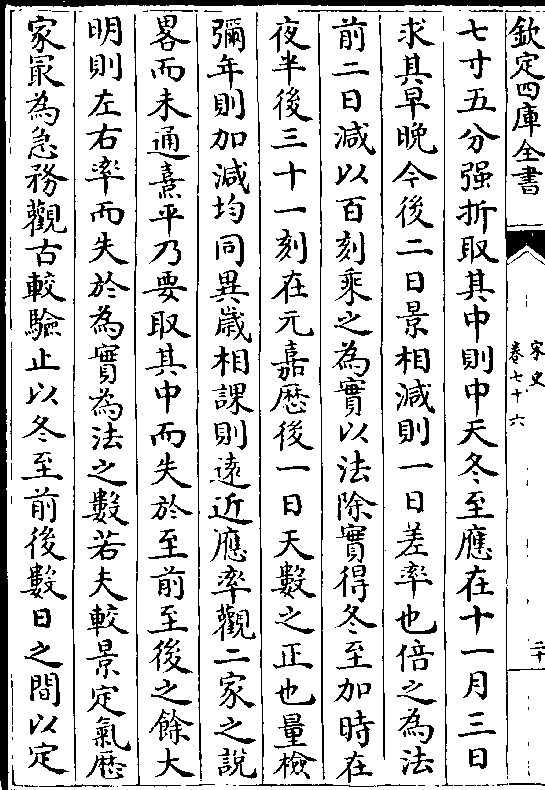 欽定四庫全書
宋史
卷七十六
二十
七寸五分强折取其中則中天冬至應在十一月三日
求其早晚今後二日景相減則一日差率也倍之為法
前二日減以百刻乗之為實以法除實得冬至加時在
夜半後三十一刻在元嘉厯後一日天數之正也量檢
彌年則加減均同異歳相課則遠近應率觀二家之說
畧而未通熹平乃要取其中而失於至前至後之餘大
明則左右率而失於為實為法之數若夫較景定氣厯
家冣為急務觀古較驗止以冬至前後數日之間以定